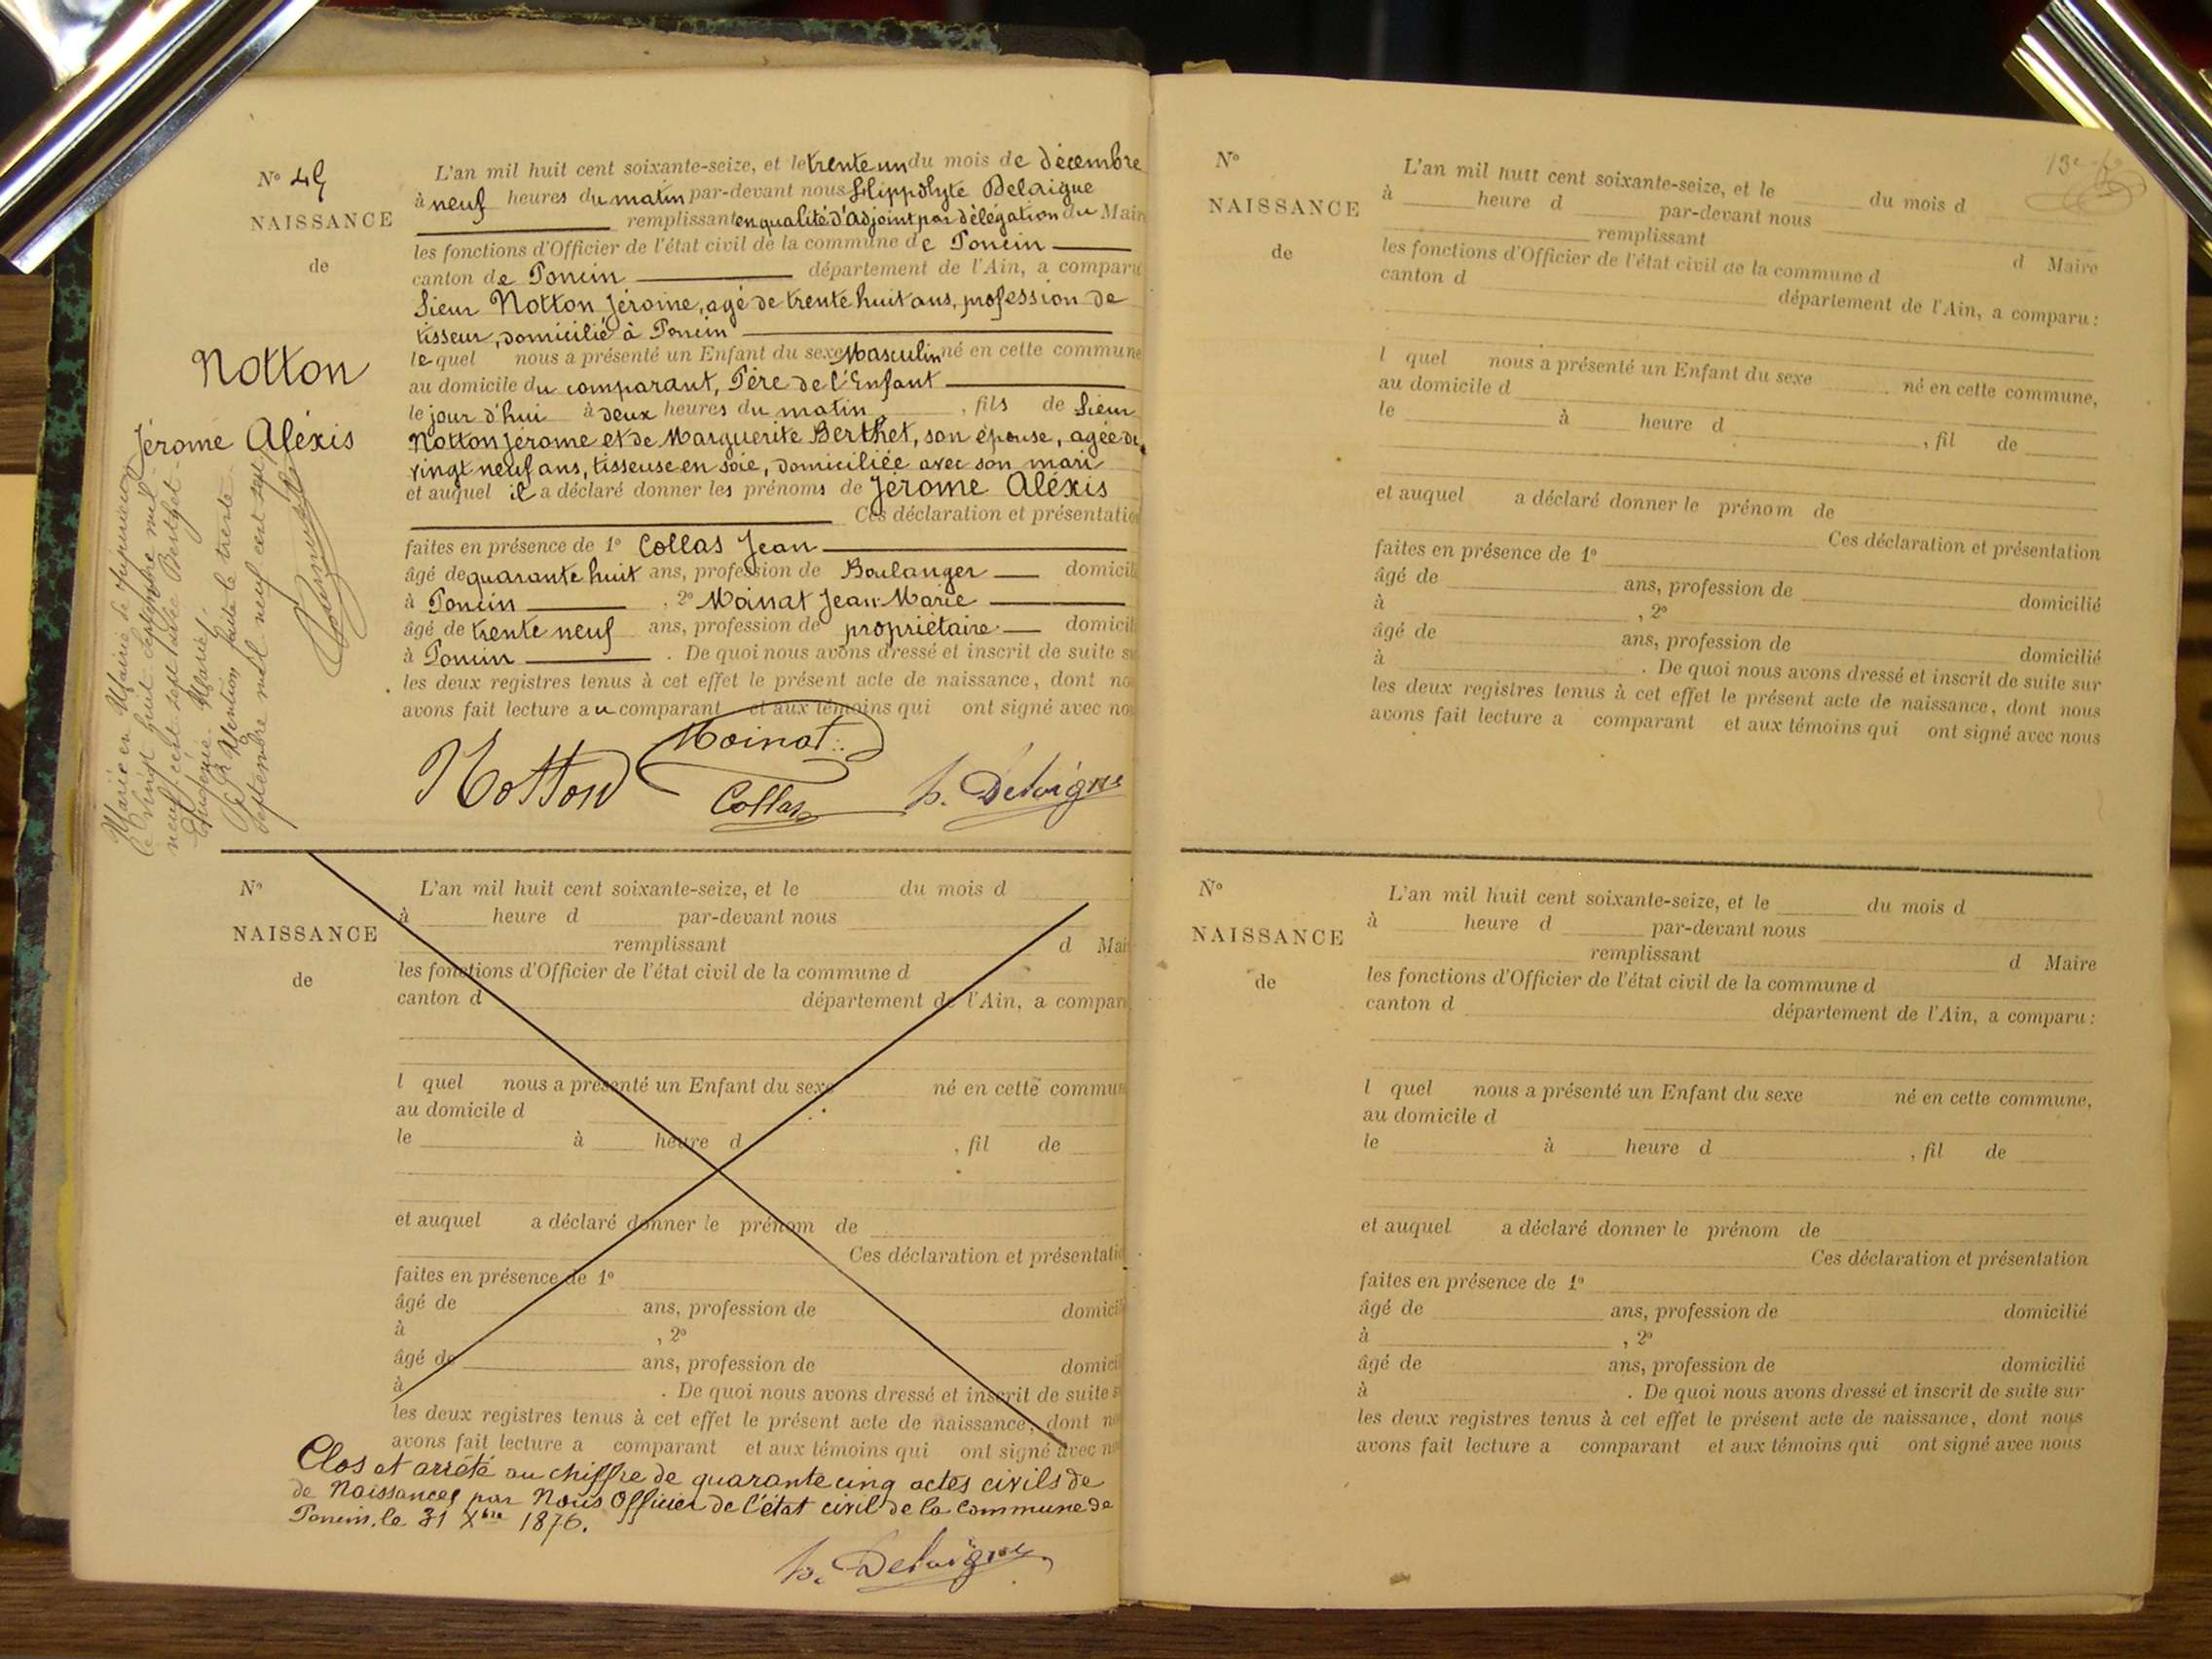 N° 45
NAISSANCE
de
Notton
Jérome Aléxis
L'an mil huit cent soixante-seize, et le trente un du mois de décembre
à neuf heures du matin par-devant nous Hippolyte Delaigue
remplissant en qualité d'Adjoint par délégation du Mair
les fonctions d'Officier de l'état civil de la commune de Poncin
canton de Poncin département de l'Ain, a comparu
Sieur Notton Jérome, agé de trente huit ans, profession de
tisseur, domicilié à Poncin
lequel nous a présenté un Enfant du sexe Masculin né en cette commune
au domicile du comparant, Père de l'Enfant
le jour d'hui à deux heures du matin, fils de Sieur
Notton Jérome et de Marguerite Berthet, son épouse, agée de
vingt neuf ans, tisseuse en soie, domiciliée avec son mari
et auquel il a déclaré donner les prénoms de Jérome Aléxis
Ces déclaration et présentation
faites en présence de 1° Collas Jean
âgé de quarante huit ans, profession de Boulanger domicil
à Poncin, 2° Moinat Jean Marie
âgé de trente neuf ans, profession de propriétaire domicil
à Poncin. De quoi nous avons dressé et inscrit de suite su
les deux registres tenus à cet effet le présent acte de naissance, dont no
avons fait lecture au comparant et aux témoins qui ont signé avec nou
Notton Moinat
Collas h. Delaigue
Marié en Mairie de
le vingt huit septembre mil
neuf cent sept avec
Eugénie
Mention faite le trente
Septembre mil neuf cent sept
N°
NAISSANCE
de
L'an mil huit cent soixante-seize, et le du mois d
à heure d par-devant nous
remplissant d Mai
les fonctions d'Officier de l'état civil de la commune d
canton d département de l'Ain, a compar
l quel nous a présenté un Enfant du sexe né en cette commun
au domicile d
le à heure d , fil de
et auquel a déclaré donner le prénom de
Ces déclaration et présentatio
faites en présence de 1°
âgé de ans, profession de domicil
à , 2°
âgé de ans, profession de domicil
à . De quoi nous avons dressé et inscrit de suite s
les deux registres tenus à cet effet le présent acte de naissance, dont no
avons fait lecture a comparant et aux témoins qui ont signé avec no
Clos et arrété au chiffre de quarante cinq actes civils de
de Naissances par Nous Officier de l'état civil de la commune de
Poncin, le 31 Xbre 1876.
h. Delaigue
N°
NAISSANCE
de
L'an mil huit cent soixante-seize, et le du mois d
à heure d par-devant nous
remplissant d Maire
les fonctions d'Officier de l'état civil de la commune d
canton d département de l'Ain, a comparu :
l quel nous a présenté un Enfant du sexe né en cette commune,
au domicile d
le à heure d , fil de
et auquel a déclaré donner le prénom de
Ces déclaration et présentation
faites en présence de 1°
âgé de ans, profession de domicilié
à , 2°
âgé de ans, profession de domicilié
à . De quoi nous avons dressé et inscrit de suite sur
les deux registres tenus à cet effet le présent acte de naissance, dont nous
avons fait lecture a comparant et aux témoins qui ont signé avec nous
N°
NAISSANCE
de
L'an mil huit cent soixante-seize, et le du mois d
à heure d par-devant nous
remplissant d Maire
les fonctions d'Officier de l'état civil de la commune d
canton d département de l'Ain, a comparu :
l quel nous a présenté un Enfant du sexe né en cette commune,
au domicile d
le à heure d , fil de
et auquel a déclaré donner le prénom de
Ces déclaration et présentation
faites en présence de 1°
âgé de ans, profession de domicilié
à , 2°
âgé de ans, profession de domicilié
à . De quoi nous avons dressé et inscrit de suite sur
les deux registres tenus à cet effet le présent acte de naissance, dont nous
avons fait lecture a comparant et aux témoins qui ont signé avec nous